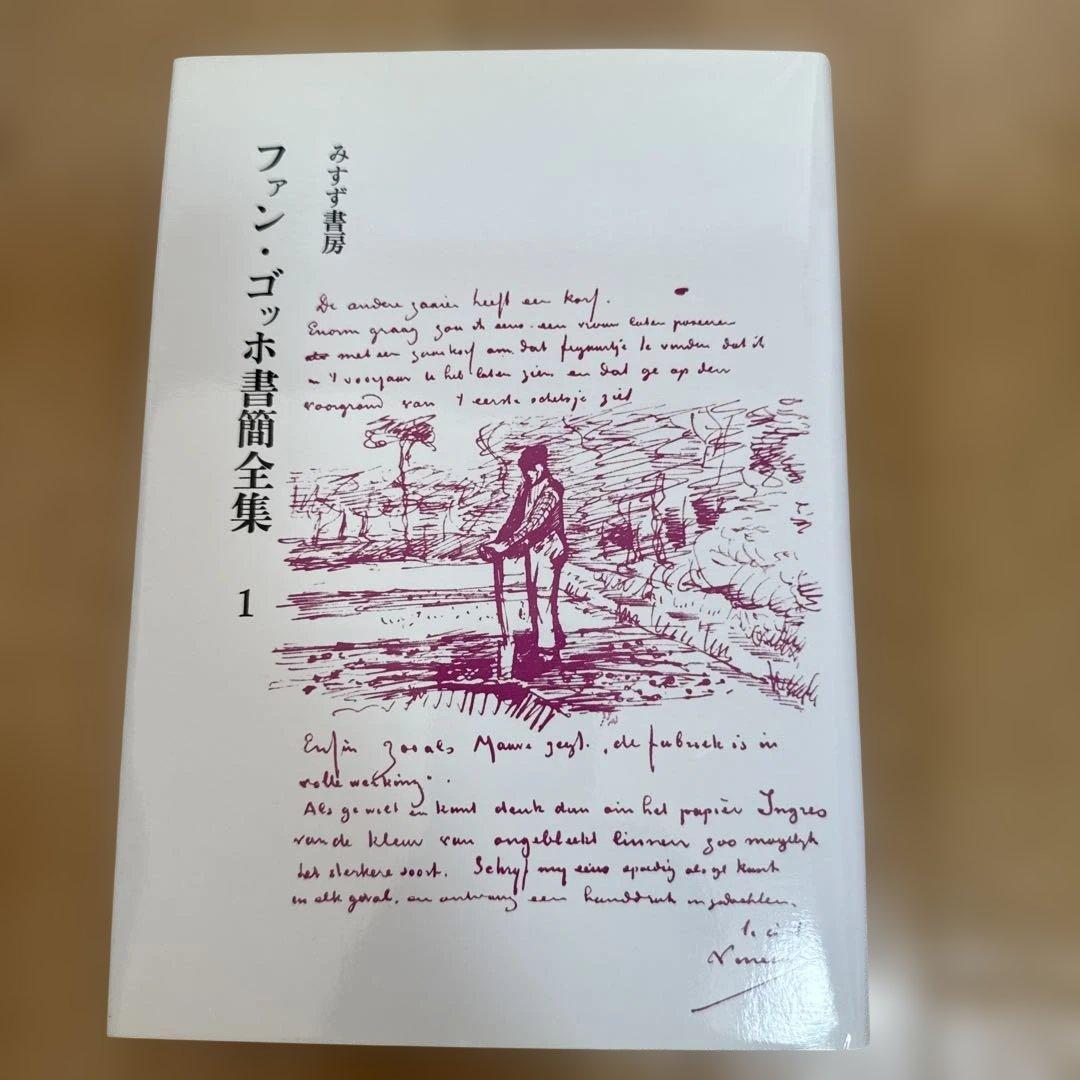 みすず書房
ファン・ゴッホ書簡全集
1
De andere zaaier heeft een korf.
Enorm graag zou ik eens een vrouw laten poseeren
met een zaaikorf om dat figuurtje te vinden dat ik
in 't voorjaar U heb laten zien en dat ge op den
voorgrond van 't eerste schetsje ziet
Enfin zooals Mauve zegt, de fabriek is in
volle werking.
Als ge wilt en kunt denk dan om het papier Ingres
van de kleur van ongebleekt linnen zoo mogelijk
het sterkere soort. Schryf my eens spoedig als ge kunt
in elk geval, en ontvang een handdruk in gedachten.